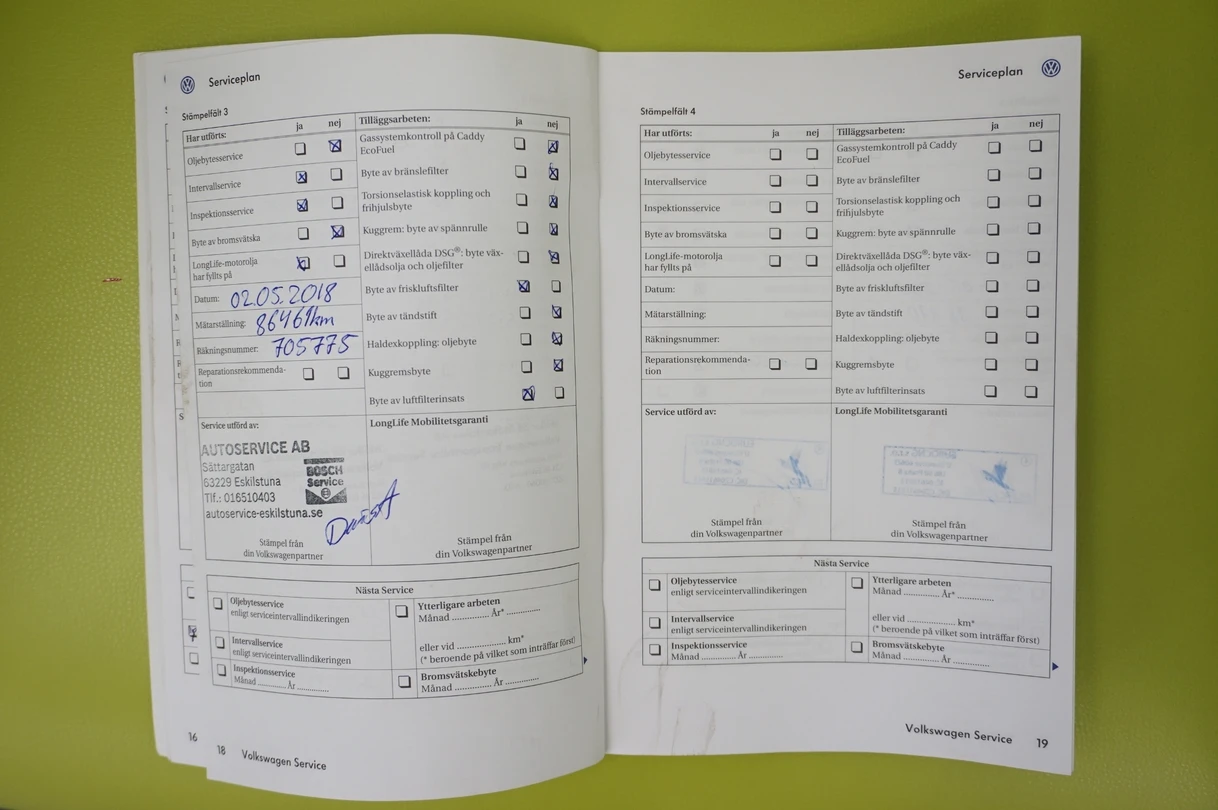 Serviceplan
Stämpelfält 3
Har utförts:
ja
nej
Tilläggsarbeten:
ja
nej
Oljebytesservice
Gassystemkontroll på Caddy
EcoFuel
Intervallservice
Byte av bränslefilter
Inspektionsservice
Torsionselastisk koppling och
frihjulsbyte
Byte av bromsvätska
Kuggrem: byte av spännrulle
LongLife-motorolja
har fyllts på
Direktväxellåda DSG®: byte väx-
ellådsolja och oljefilter
Datum: 02.05.2018
Byte av friskluftsfilter
Mätarställning: 86461km
Byte av tändstift
Räkningsnummer: 705775
Haldexkoppling: oljebyte
Reparationsrekommenda-
tion
Kuggremsbyte
Byte av luftfilterinsats
Service utförd av:
LongLife Mobilitetsgaranti
AUTOSERVICE AB
Sättargatan
63229 Eskilstuna
Tlf.: 016510403
autoservice-eskilstuna.se
BOSCH
Service
Stämpel från
din Volkswagenpartner
Stämpel från
din Volkswagenpartner
Nästa Service
Oljebytesservice
enligt serviceintervallindikeringen
Ytterligare arbeten
Månad .............. År* .............
Intervallservice
enligt serviceintervallindikeringen
eller vid .................... km*
(* beroende på vilket som inträffar först)
Inspektionsservice
Månad ........... År ............
Bromsvätskebyte
Månad .............. År .............
16
18 Volkswagen Service
Serviceplan
Stämpelfält 4
Har utförts:
ja
nej
Tilläggsarbeten:
ja
nej
Oljebytesservice
Gassystemkontroll på Caddy
EcoFuel
Intervallservice
Byte av bränslefilter
Inspektionsservice
Torsionselastisk koppling och
frihjulsbyte
Byte av bromsvätska
Kuggrem: byte av spännrulle
LongLife-motorolja
har fyllts på
Direktväxellåda DSG®: byte väx-
ellådsolja och oljefilter
Datum:
Byte av friskluftsfilter
Mätarställning:
Byte av tändstift
Räkningsnummer:
Haldexkoppling: oljebyte
Reparationsrekommenda-
tion
Kuggremsbyte
Byte av luftfilterinsats
Service utförd av:
LongLife Mobilitetsgaranti
Stämpel från
din Volkswagenpartner
Stämpel från
din Volkswagenpartner
Nästa Service
Oljebytesservice
enligt serviceintervallindikeringen
Ytterligare arbeten
Månad .............. År* .............
Intervallservice
enligt serviceintervallindikeringen
eller vid .................... km*
(* beroende på vilket som inträffar först)
Inspektionsservice
Månad .............. År .............
Bromsvätskebyte
Månad .............. År .............
Volkswagen Service 19